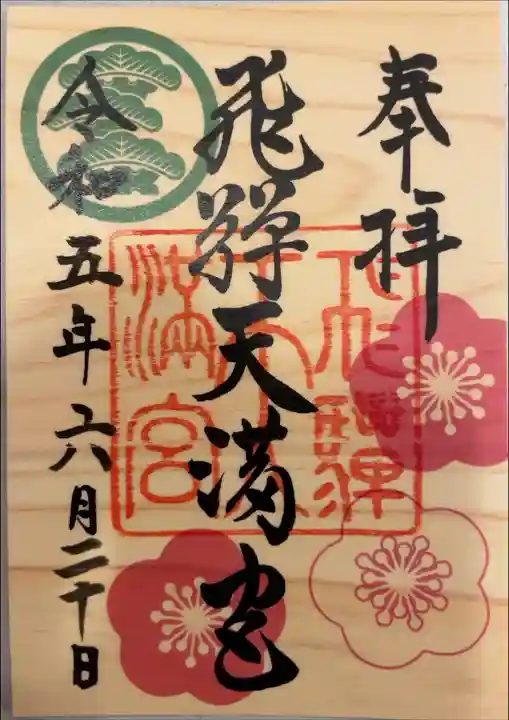 奉拝
飛騨天満宮
令和五年六月二十日
飛騨
天
満宮